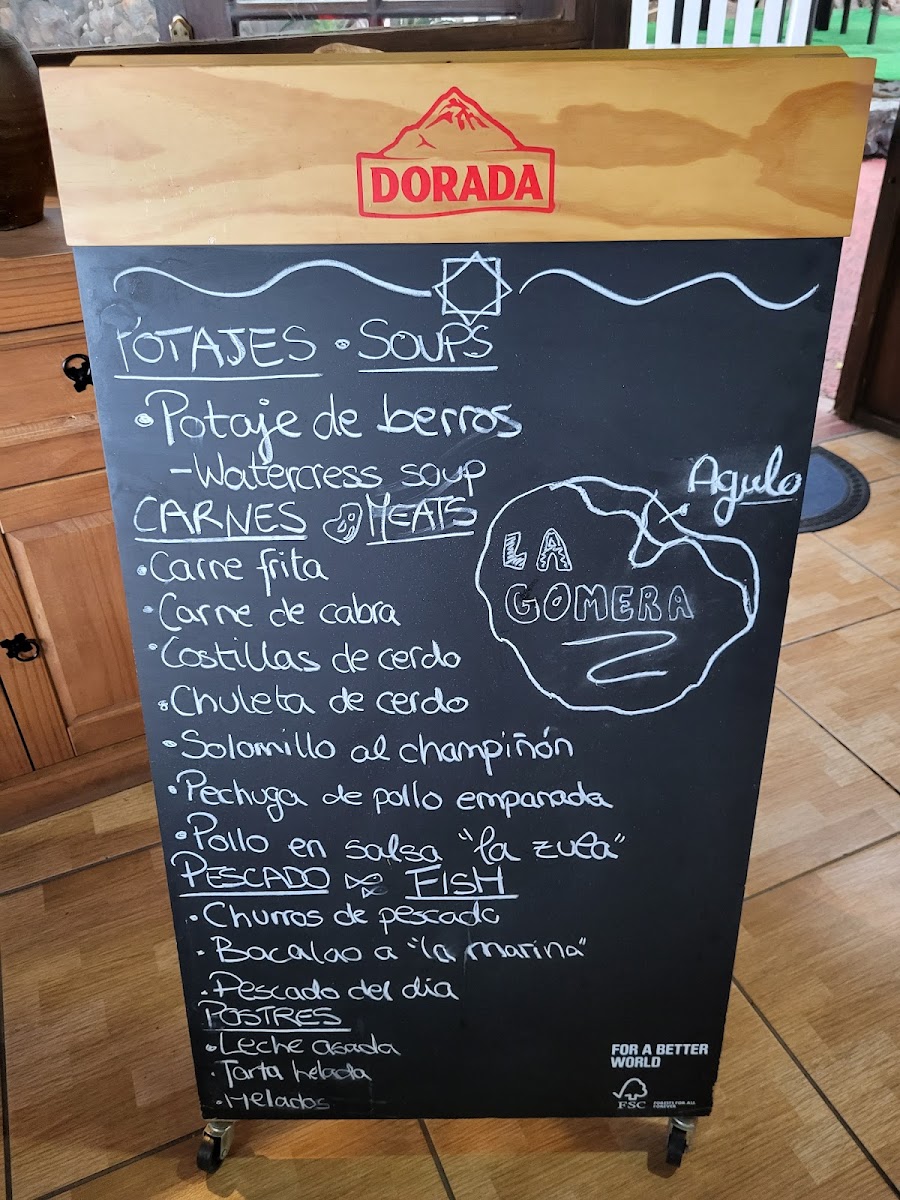 DORADA
POTAJES • SOUPS
• Potaje de berros
- Watercress soup
CARNES MEATS
• Carne frita
• Carne de cabra
• Costillas de cerdo
• Chuleta de cerdo
• Solomillo al champiñón
• Pechuga de pollo empanada
• Pollo en salsa "la zula"
Agulo
LA
GOMERA
PESCADO FISH
• Churros de pescado
• Bacalao a "la marina"
• Pescado del dia
POSTRES
• Leche asada
• Tarta helada
• Helados
FOR A BETTER
WORLD
FSC
FORESTS FOR ALL
FOREVER